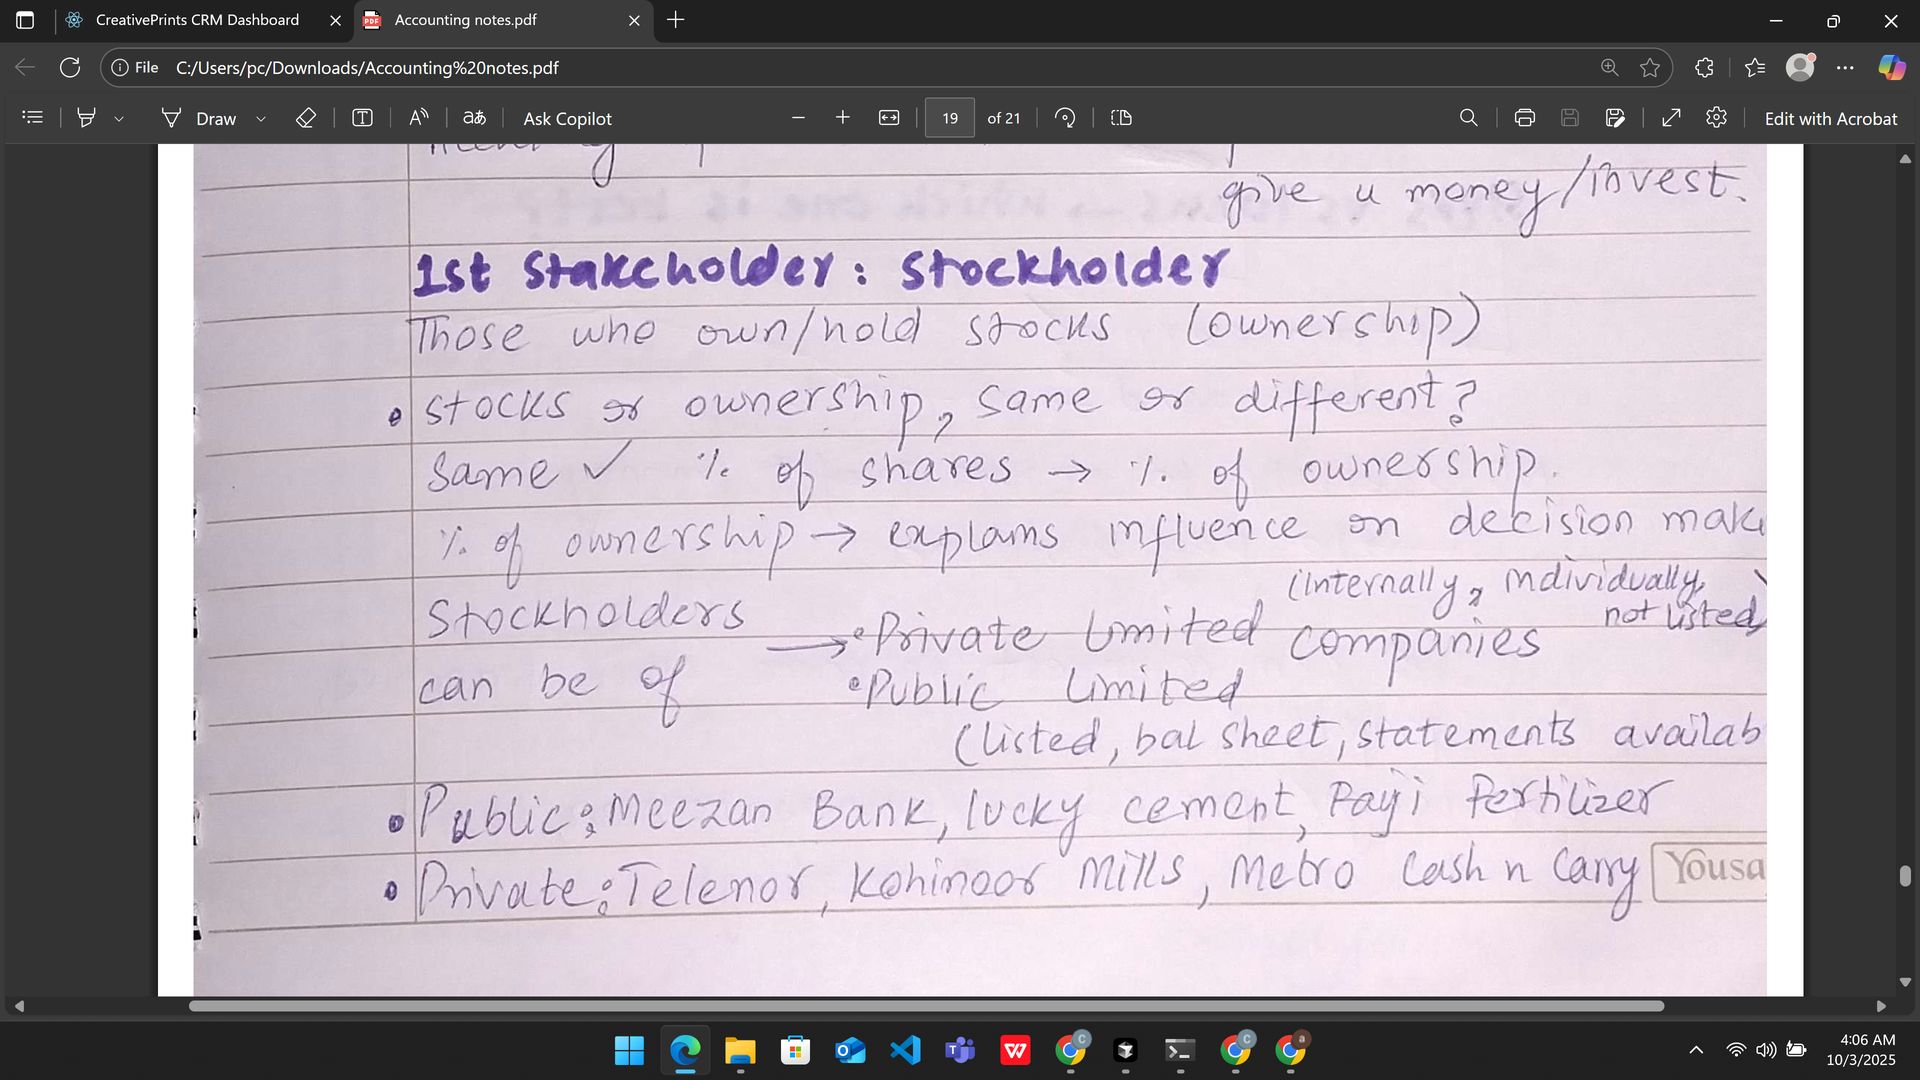 CreativePrints CRM Dashboard
Accounting notes.pdf
File C:/Users/pc/Downloads/Accounting%20notes.pdf
Draw
Ask Copilot
19 of 21
Edit with Acrobat
give u money/invest.
1st Stakeholder: Stockholder
Those who own/hold stocks (ownership)
• stocks or ownership, same or different?
Same ✓ % of shares → % of ownership.
% of ownership → explains influence on decision mak
(internally, individually,
not listed)
Stockholders
→ • Private limited companies
can be of • Public limited
(listed, bal sheet, statements availab
• Public: Meezan Bank, lucky cement, Fayji Fertilizer
• Private: Telenor, Kohinoor Mills, Metro Cash n Carry
Yousa
4:06 AM
10/3/2025